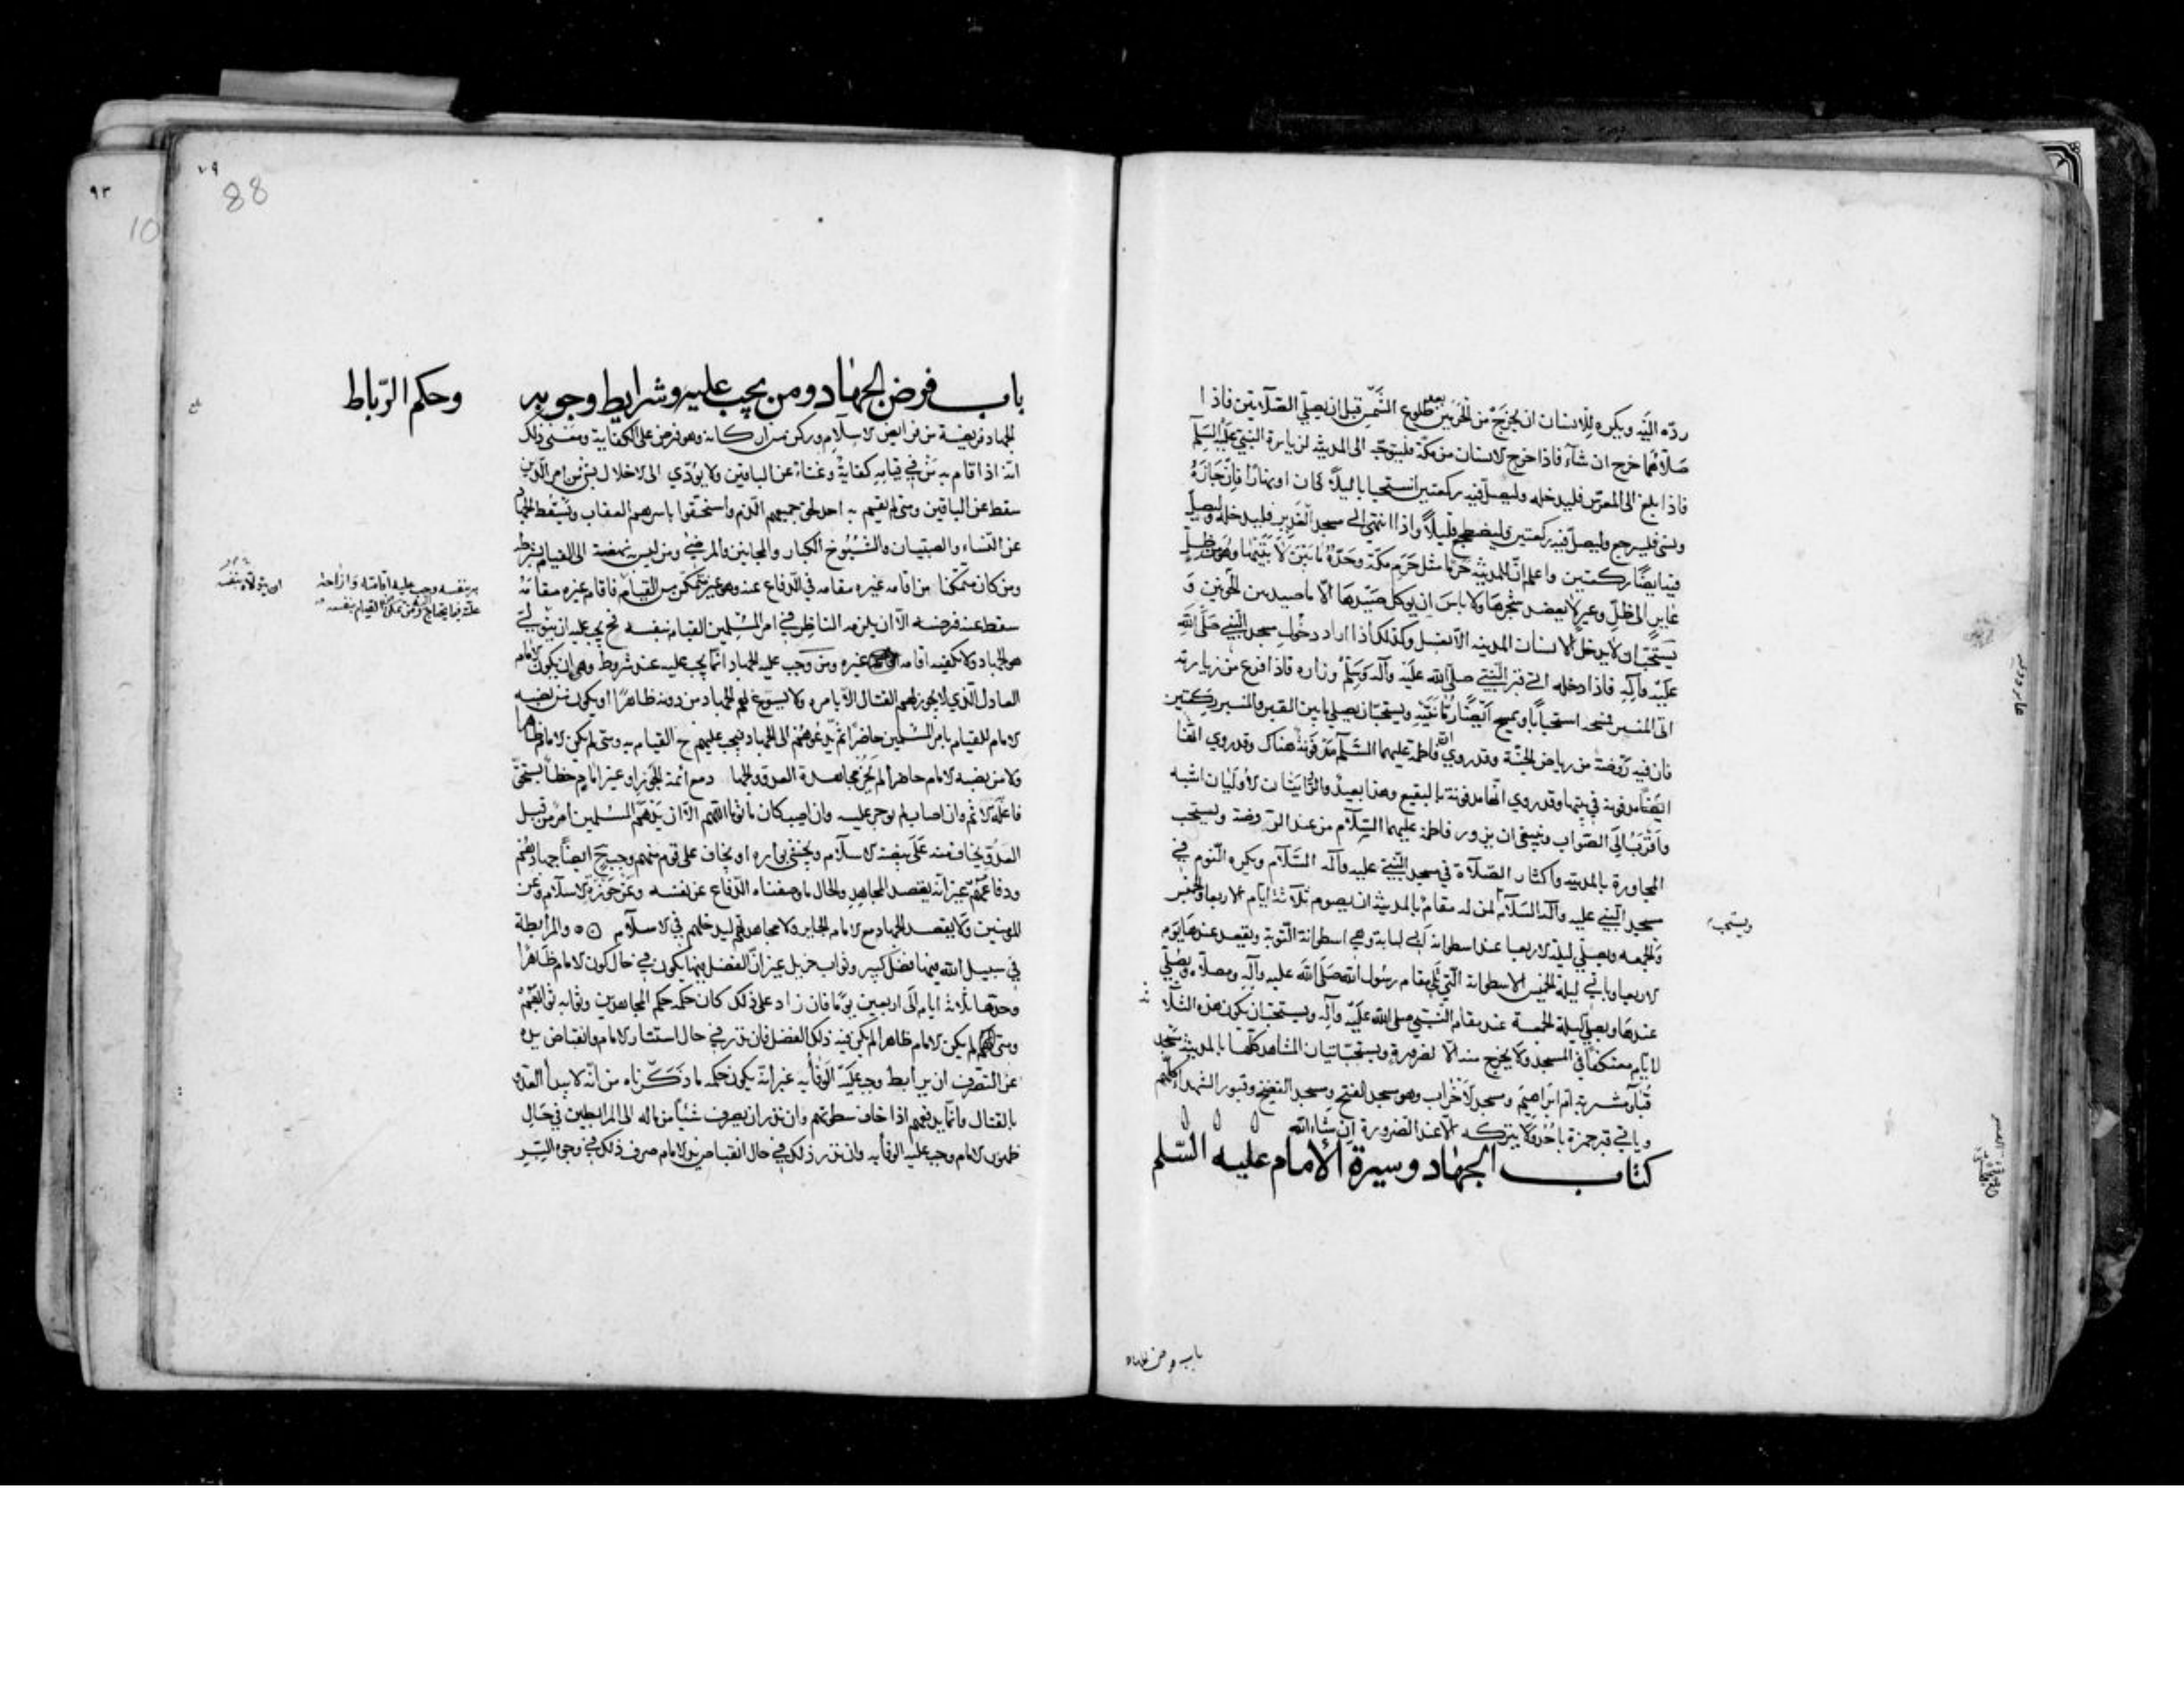 ردّه اليه ويكره للانسان ان يخرج من الحرمين بعد طلوع الشمس قبل ان يصلي الصلاتين فاذا
صلاهما خرج ان شآء فاذا خرج الانسان من مكة فليتوجه الى المدينة لزيارة النبي عليه السلم
فاذا بلغ الى المعرس فليدخله وليصل فيه ركعتين استحبابا ليلا كان او نهارا فان جازه
ونسي فليرجع وليصل فيه ركعتين وليضطجع قليلا واذا انتهى الى مسجد الغدير فليدخله وليصل
فيه ايضا ركعتين واعلم ان للمدينة حرما مثل حرم مكة وحده ما بين لابتيها وهو من ظل
عاير الى ظل وعير لا يعضد شجرها ولا باس ان يوكل صيدها الا ما صيد بين الحرمين و
يستحب ان لا يدخل الانسان المدينه الا بغسل وكذلك اذا اراد دخول مسجد النبي صلى الله
عليه وآله فاذا دخله اتى قبر النبي صلى الله عليه وآله وسلم وزاره فاذا فرغ من زيارته
اتى المنبر فمسحه استحبابا ويمسح ايضا رمانتيه ويستحب ان يصلي ما بين القبر والمنبر ركعتين
فان فيه روضة من رياض الجنة وقد روي ان فاطمة عليهما السلم مدفونة هناك وقد روي انها
ايضا مدفونة في بيتها وقد روي انها مدفونة بالبقيع وهذا بعيد والروايتان الاوليان اشبه
واقرب الى الصواب وينبغي ان يزور فاطمة عليهما السلام من عند الروضة ويستحب
المجاورة بالمدينه واكثار الصلاة في مسجد النبي عليه وآله السلام ويكره النوم في
مسجد النبي عليه وآله السلام لمن له مقام بالمدينة ان يصوم ثلاثة ايام الاربعا والخميس
ويستحب
والجمعه ويصلي ليلة الاربعا عند اسطوانة ابي لبابة وهي اسطوانة التوبة ويقعد عندها يوم
الاربعا وياتي ليلة الخميس الاسطوانة التي تلي مقام رسول الله صلى الله عليه وآله ومصلاه ويصلي
عندها ويصلي ليلة الجمعة عند مقام النبي صلى الله عليه وآله ويستحب ان يكون هذه الثلاثة
الايام معتكفا في المسجد ولا يخرج منه الا لضرورة ويستحب اتيان المشاهد كلها بالمدينة مسجد
قبا ومشربة ام ابراهيم ومسجد الاحزاب وهو مسجد الفتح ومسجد الفضيخ وقبور الشهداء كلهم
وياتي قبر حمزة باحد ولا يتركه الا عند الضرورة ان شاء الله
كتاب الجهاد وسيرة الإمام عليه السلم
باب فرض الجهاد
٨٩
88
٩٣
10
باب فرض الجهاد ومن يجب عليه وشرايط وجوبه وحكم الرباط
الجهاد فريضة من فرايض الاسلام وركن من اركانه وهو فرض على الكفاية ومعنى ذلك
انه اذا قام به من في قيامه كفاية وغناء عن الباقين ولا يؤدي الى الاخلال بشئ من امر الدين
سقط عن الباقين ومتى لم يقم به احد لحق جميعهم الذم واستحقوا باسرهم العقاب ويسقط الجهاد
عن النساء والصبيان والشيوخ الكبار والمجانين والمرضى ومن ليس به نهضة الى القيام بشرطه
ومن كان متمكنا من اقامه غيره مقامه في الدفاع عنه وهو غير متمكن من القيام فاقام غيره مقامه
بنفسه وجب عليه اقامته وازاحة
علته فيما يحتاج اليه ومن تمكن من القيام بنفسه
ان يتولاه بنفسه
سقط عنه فرضه الا ان يلزمه الناظر في امر المسلمين القيام بنفسه فح يجب عليه ان يتولى
هو الجهاد ولا يكفيه اقامة غيره ومن وجب عليه الجهاد انما يجب عليه عند شروط وهي ان يكون الامام
العادل الذي لا يجوز لهم القتال الا بامره ولا يسوغ لهم الجهاد من دونه ظاهرا او يكون من نصبه
الامام للقيام بامر المسلمين حاضرا ثم يدعوهم الى الجهاد فيجب عليهم ح القيام به ومتى لم يكن الامام ظاهرا
ولا من نصبه الامام حاضرا لم يجز مجاهدة العدو والجهاد مع ائمة الجور او غير امام خطأ يستحق
فاعله الاثم وان اصاب لم يوجر عليه وان اصيب كان ماثوما اللهم الا ان يدهم المسلمين امر من قبل
العدو يخاف منه على بيضة الاسلام ويخشى بواره او يخاف على قوم منهم وجب ح ايضا جهادهم
ودفاعهم غير انه يقصد المجاهد والحال ما وصفناه الدفاع عن نفسه وعن حوزة الاسلام وعن
المومنين ولا يقصد الجهاد مع الامام الجاير ولا مجاهدتهم ليدخلهم في الاسلام ⊙ والمرابطة
في سبيل الله فيها فضل كبير وثواب جزيل غير ان الفضل فيها يكون في حال كون الامام ظاهرا
وحدها ثلاثة ايام الى اربعين يوما فان زاد على ذلك كان حكمه حكم المجاهدين وثوابه ثوابهم
ومتى لم يكن الامام ظاهرا لم يكن فيه ذلك الفضل فان نذر في حال استتار الامام وانقباض يده
عن التصرف ان يرابط وجب عليه الوفاء به غير انه يكون حكمه ما ذكرناه من انه لا يبدأ العدو
بالقتال وانما يدفعهم اذا خاف سطوتهم وان نذر ان يصرف شيئا من ماله الى المرابطين في حال
ظهور الامام وجب عليه الوفا به وان نذر ذلك في حال انقباض يد الامام صرف ذلك في وجوه البر